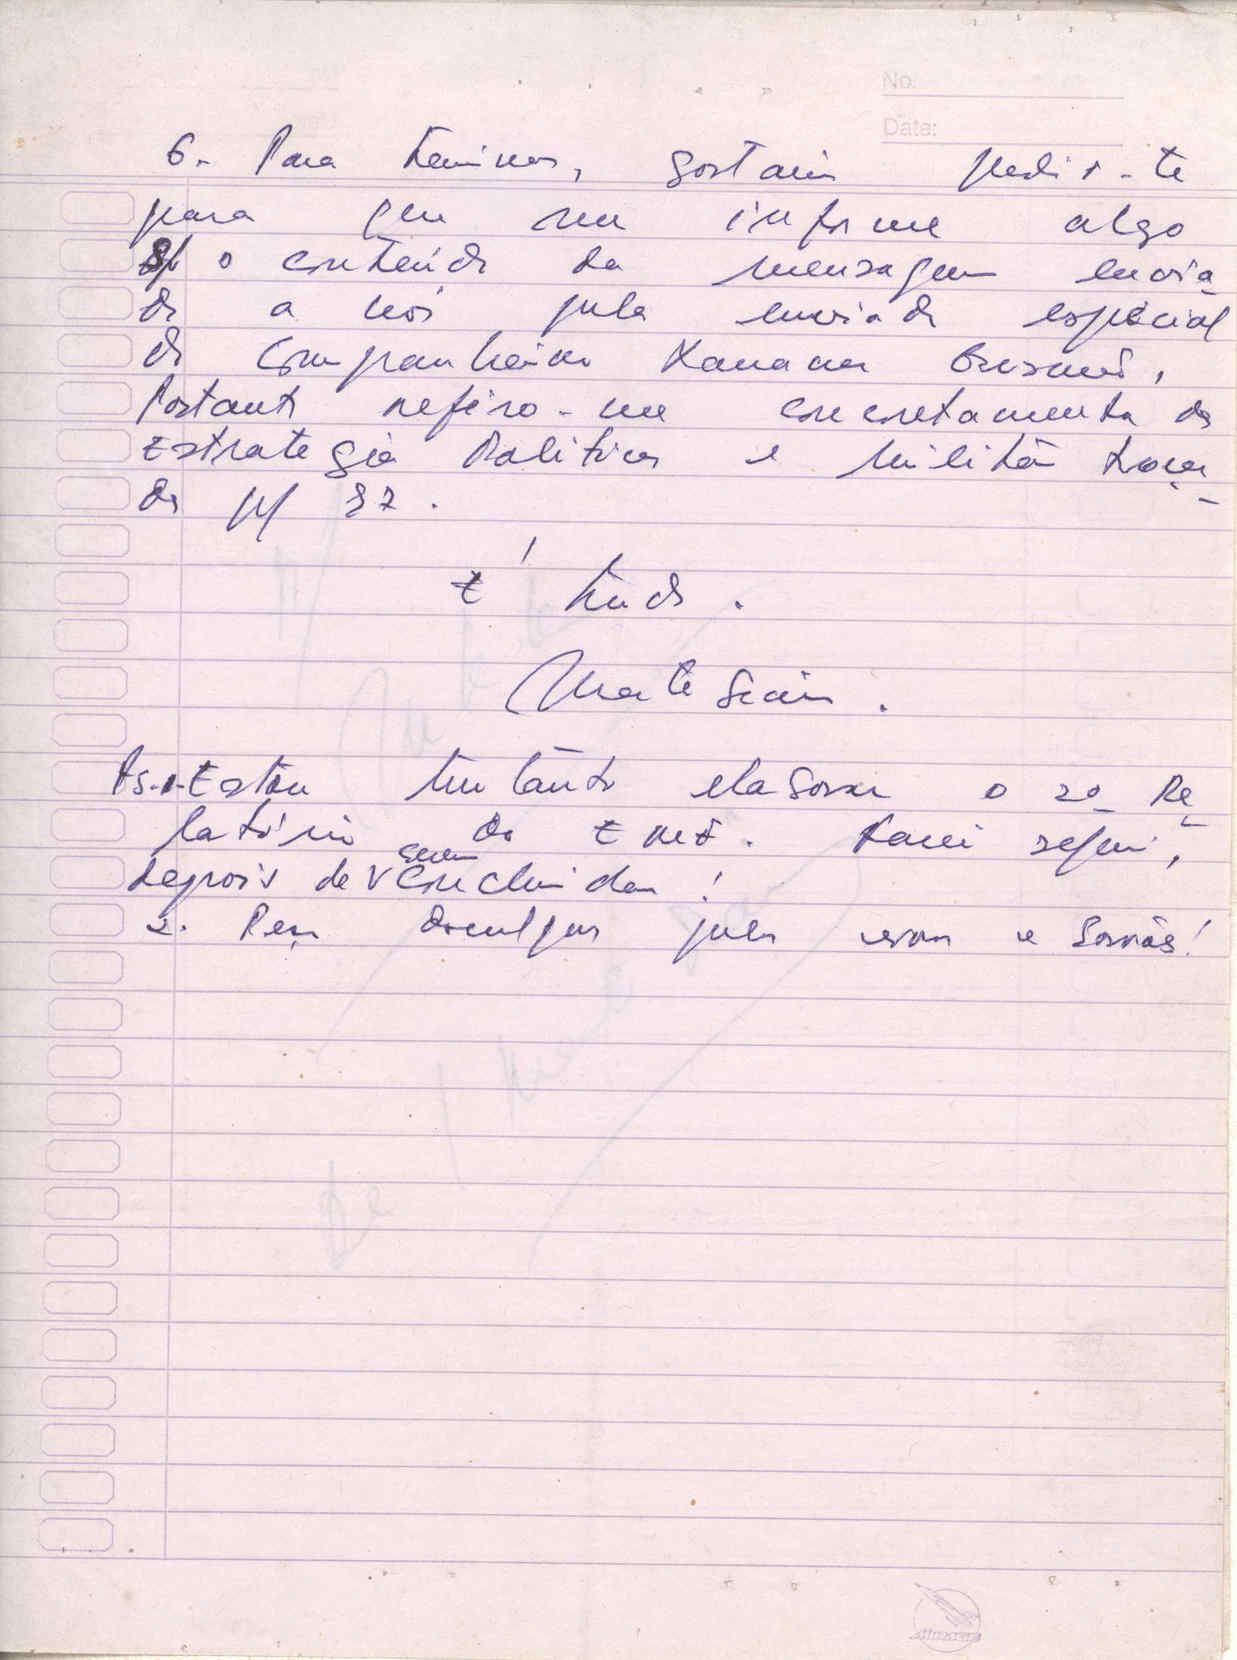 No.
Date:
6. Para terminar, gostaria pedir-te
para que me informe algo
s/ o conteúdo da mensagem envia-
da a nós pela enviado especial
do Companheiro Xanana Gusmão,
Portanto refiro-me concretamente da
Estrategia Politica e Militar traça-
da p/ 87.
É tudo.
Mate
Ps.1. Estou tentando elaborar o 2º Re-
latório do . Farei seguir,
depois de concluido!
2. Peço desculpas pelos erros e borrões!